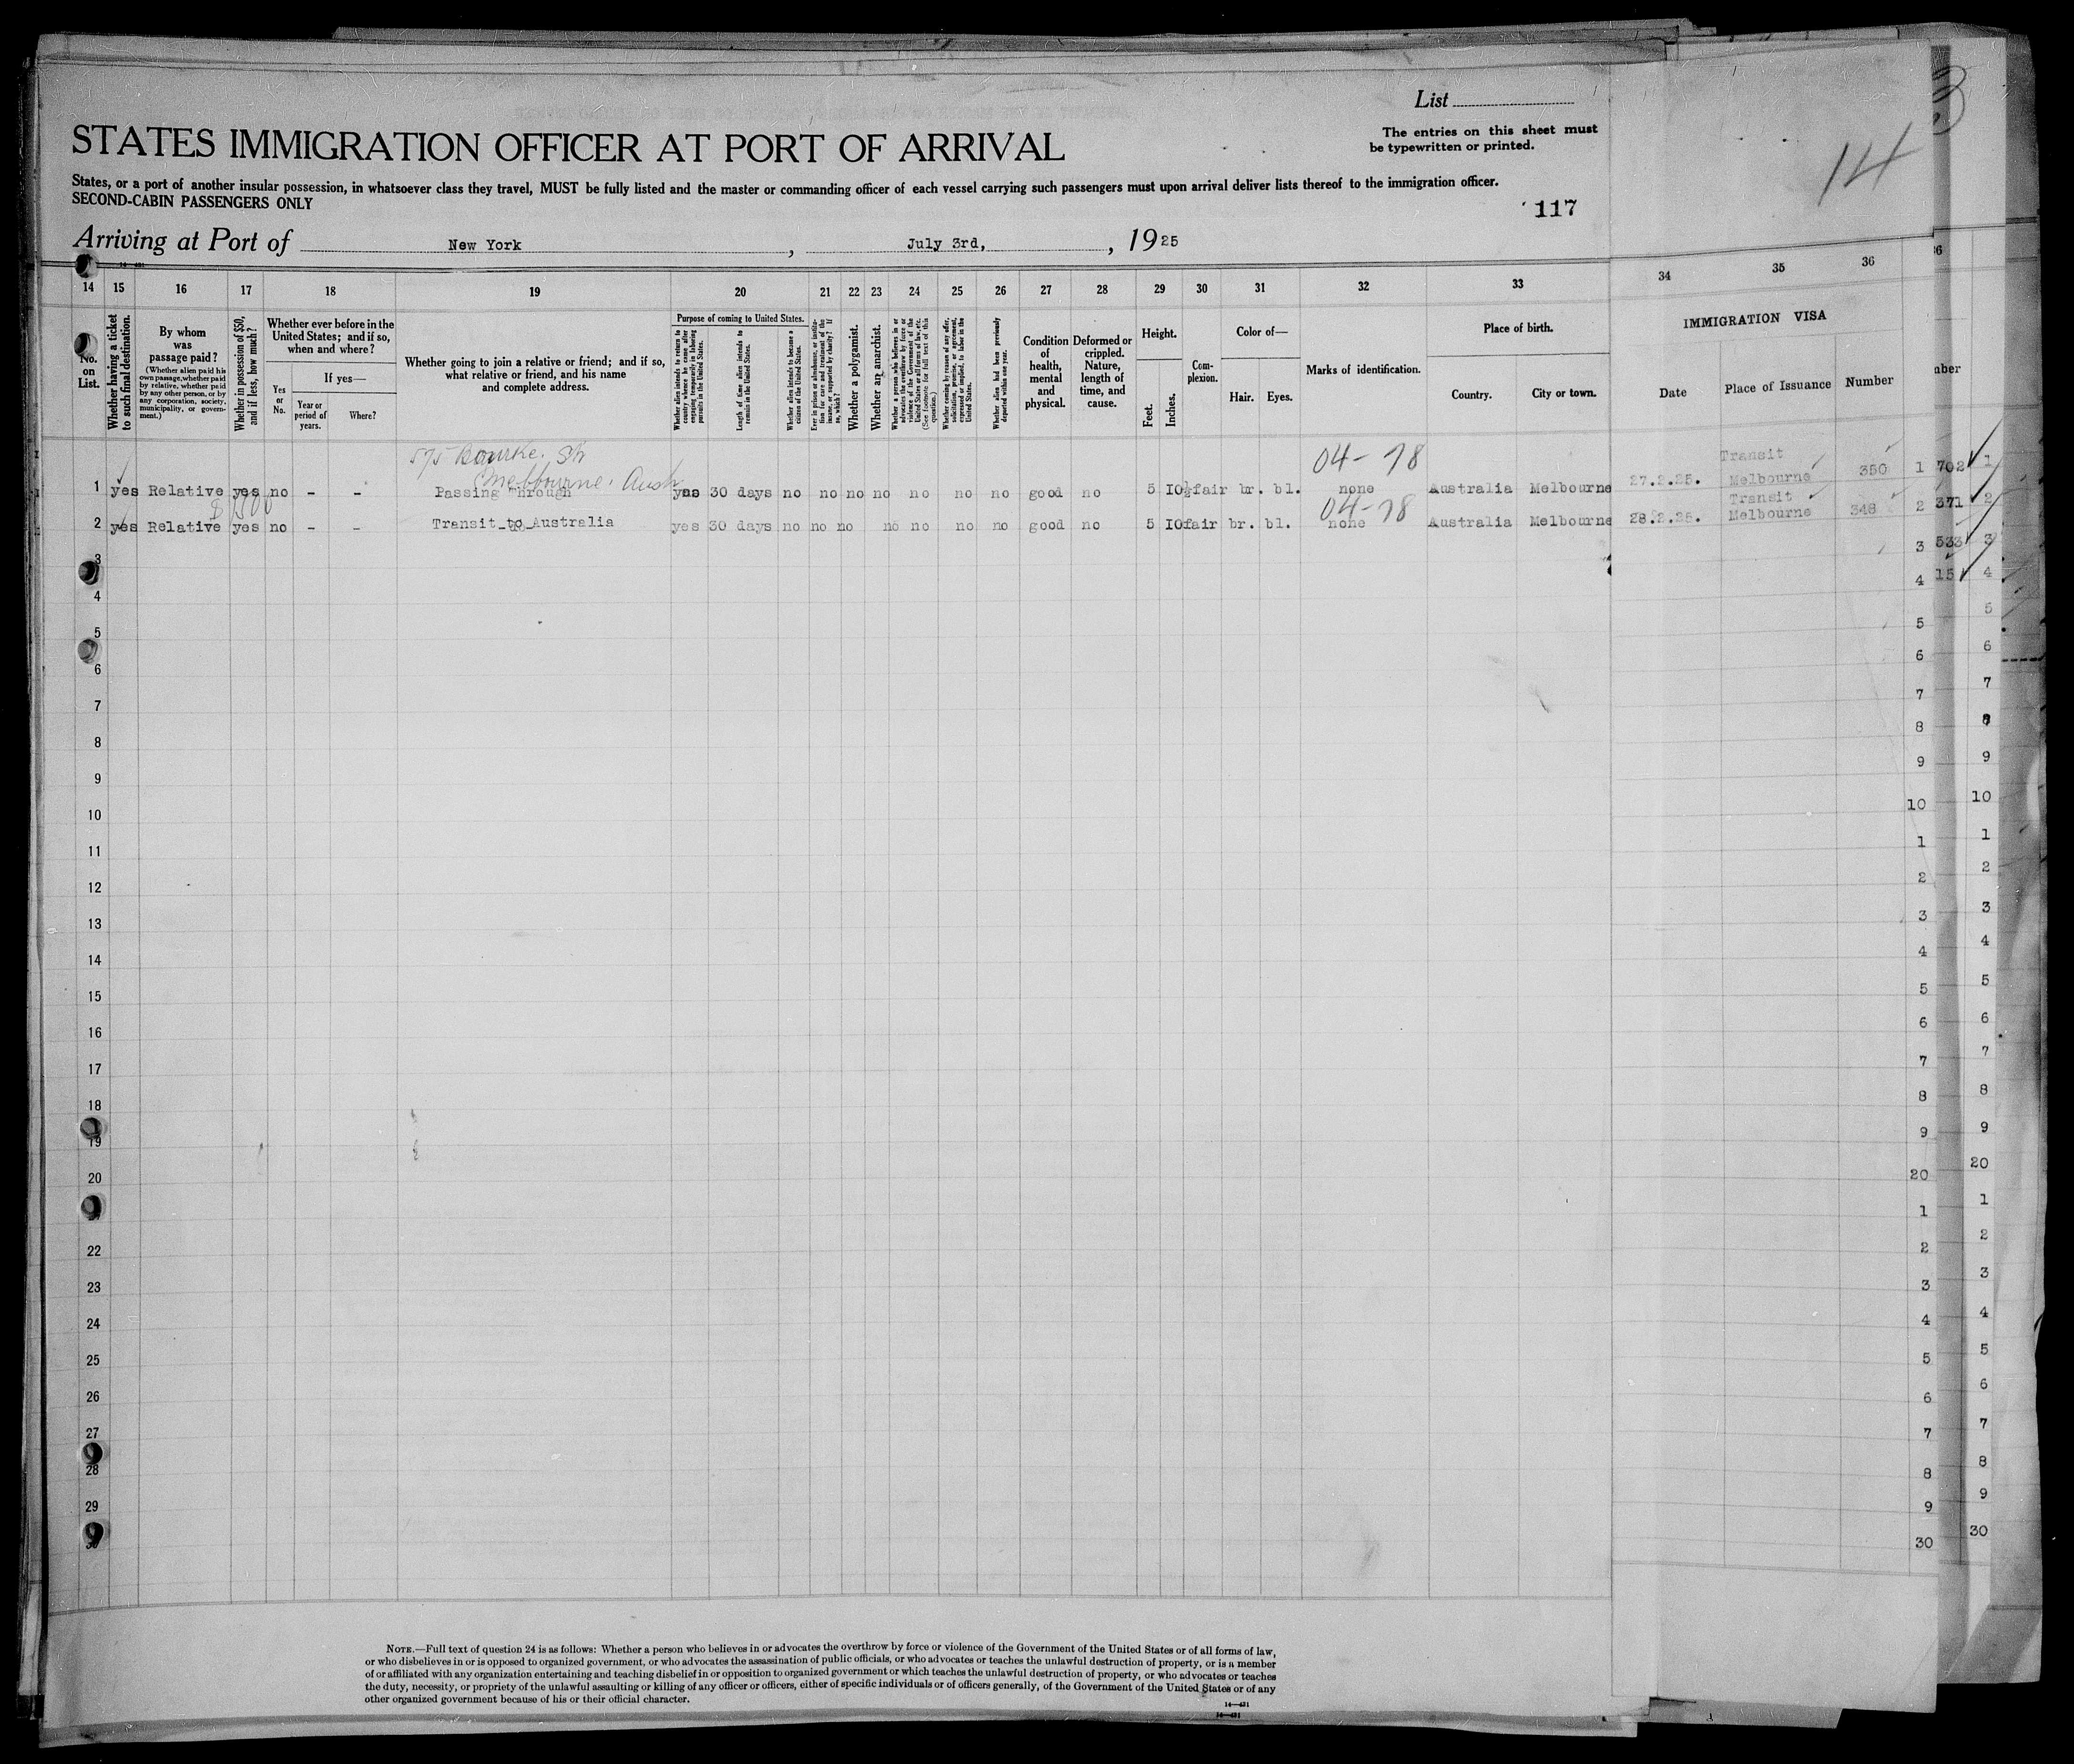 List
The entries on this sheet must
be typewritten or printed.
14
STATES IMMIGRATION OFFICER AT PORT OF ARRIVAL
States, or a port of another insular possession, in whatsoever class they travel, MUST be fully listed and the master or commanding officer of each vessel carrying such passengers must upon arrival deliver lists thereof to the immigration officer.
SECOND-CABIN PASSENGERS ONLY
117
Arriving at Port of New York, July 3rd, , 1925
14 15 16 17 18 19 20 21 22 23 24 25 26 27 28 29 30 31 32 33 34 35 36
No. on List.
Whether having a ticket to such final destination.
By whom was passage paid?
(Whether alien paid his own passage, whether paid by relative, whether paid by any other person, or by any corporation, society, municipality, or government.)
Whether in possession of $50, and if less, how much?
Whether ever before in the United States; and if so, when and where?
Yes or No.
If yes—
Year or period of years.
Where?
Whether going to join a relative or friend; and if so, what relative or friend, and his name and complete address.
Purpose of coming to United States.
Whether alien intends to return to country whence he came after engaging temporarily in laboring pursuits in the United States.
Length of time alien intends to remain in the United States.
Whether alien intends to become a citizen of the United States.
Ever in prison or almshouse, or institution for care and treatment of the insane, or supported by charity? If so, which?
Whether a polygamist.
Whether an anarchist.
Whether a person who believes in or advocates the overthrow by force or violence of the Government of the United States or all forms of law, etc. (See footnote for full text of this question.)
Whether coming by reason of any offer, solicitation, promise, or agreement, expressed or implied, to labor in the United States.
Whether alien had been previously deported within one year.
Condition of health, mental and physical.
Deformed or crippled. Nature, length of time, and cause.
Height.
Feet. Inches.
Complexion.
Color of—
Hair. Eyes.
Marks of identification.
Place of birth.
Country. City or town.
IMMIGRATION VISA
Date Place of Issuance Number
575 Bourke. St
Melbourne. Aust
04-78
Transit
1 yes Relative yes no - - Passing Through yes 30 days no no no no no no no good no 5 10½ fair br. bl. none Australia Melbourne 27.2.25. Melbourne 350 1
$1500
04-78
Transit
2 yes Relative yes no - - Transit to Australia yes 30 days no no no no no no no good no 5 10 fair br. bl. none Australia Melbourne 28.2.25. Melbourne 348 2
702 1
371 2
533 3
15 4
3 3
4 4
5 5 5
6 6 6
7 7 7
8 8 8
9 9 9
10 10 10
11 1 1
12 2 2
13 3 3
14 4 4
15 5 5
16 6 6
17 7 7
18 8 8
19 9 9
20 20 20
1 1
22 2 2
23 3 3
24 4 4
25 5 5
26 6 6
27 7 7
28 8 8
29 9 9
30 30 30
NOTE.—Full text of question 24 is as follows: Whether a person who believes in or advocates the overthrow by force or violence of the Government of the United States or of all forms of law,
or who disbelieves in or is opposed to organized government, or who advocates the assassination of public officials, or who advocates or teaches the unlawful destruction of property, or is a member
of or affiliated with any organization entertaining and teaching disbelief in or opposition to organized government or which teaches the unlawful destruction of property, or who advocates or teaches
the duty, necessity, or propriety of the unlawful assaulting or killing of any officer or officers, either of specific individuals or of officers generally, of the Government of the United States or of any
other organized government because of his or their official character.
14—431
14—431